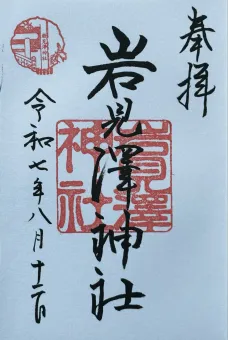 奉拝
岩見澤神社
岩見澤
神社
令和七年八月十二日